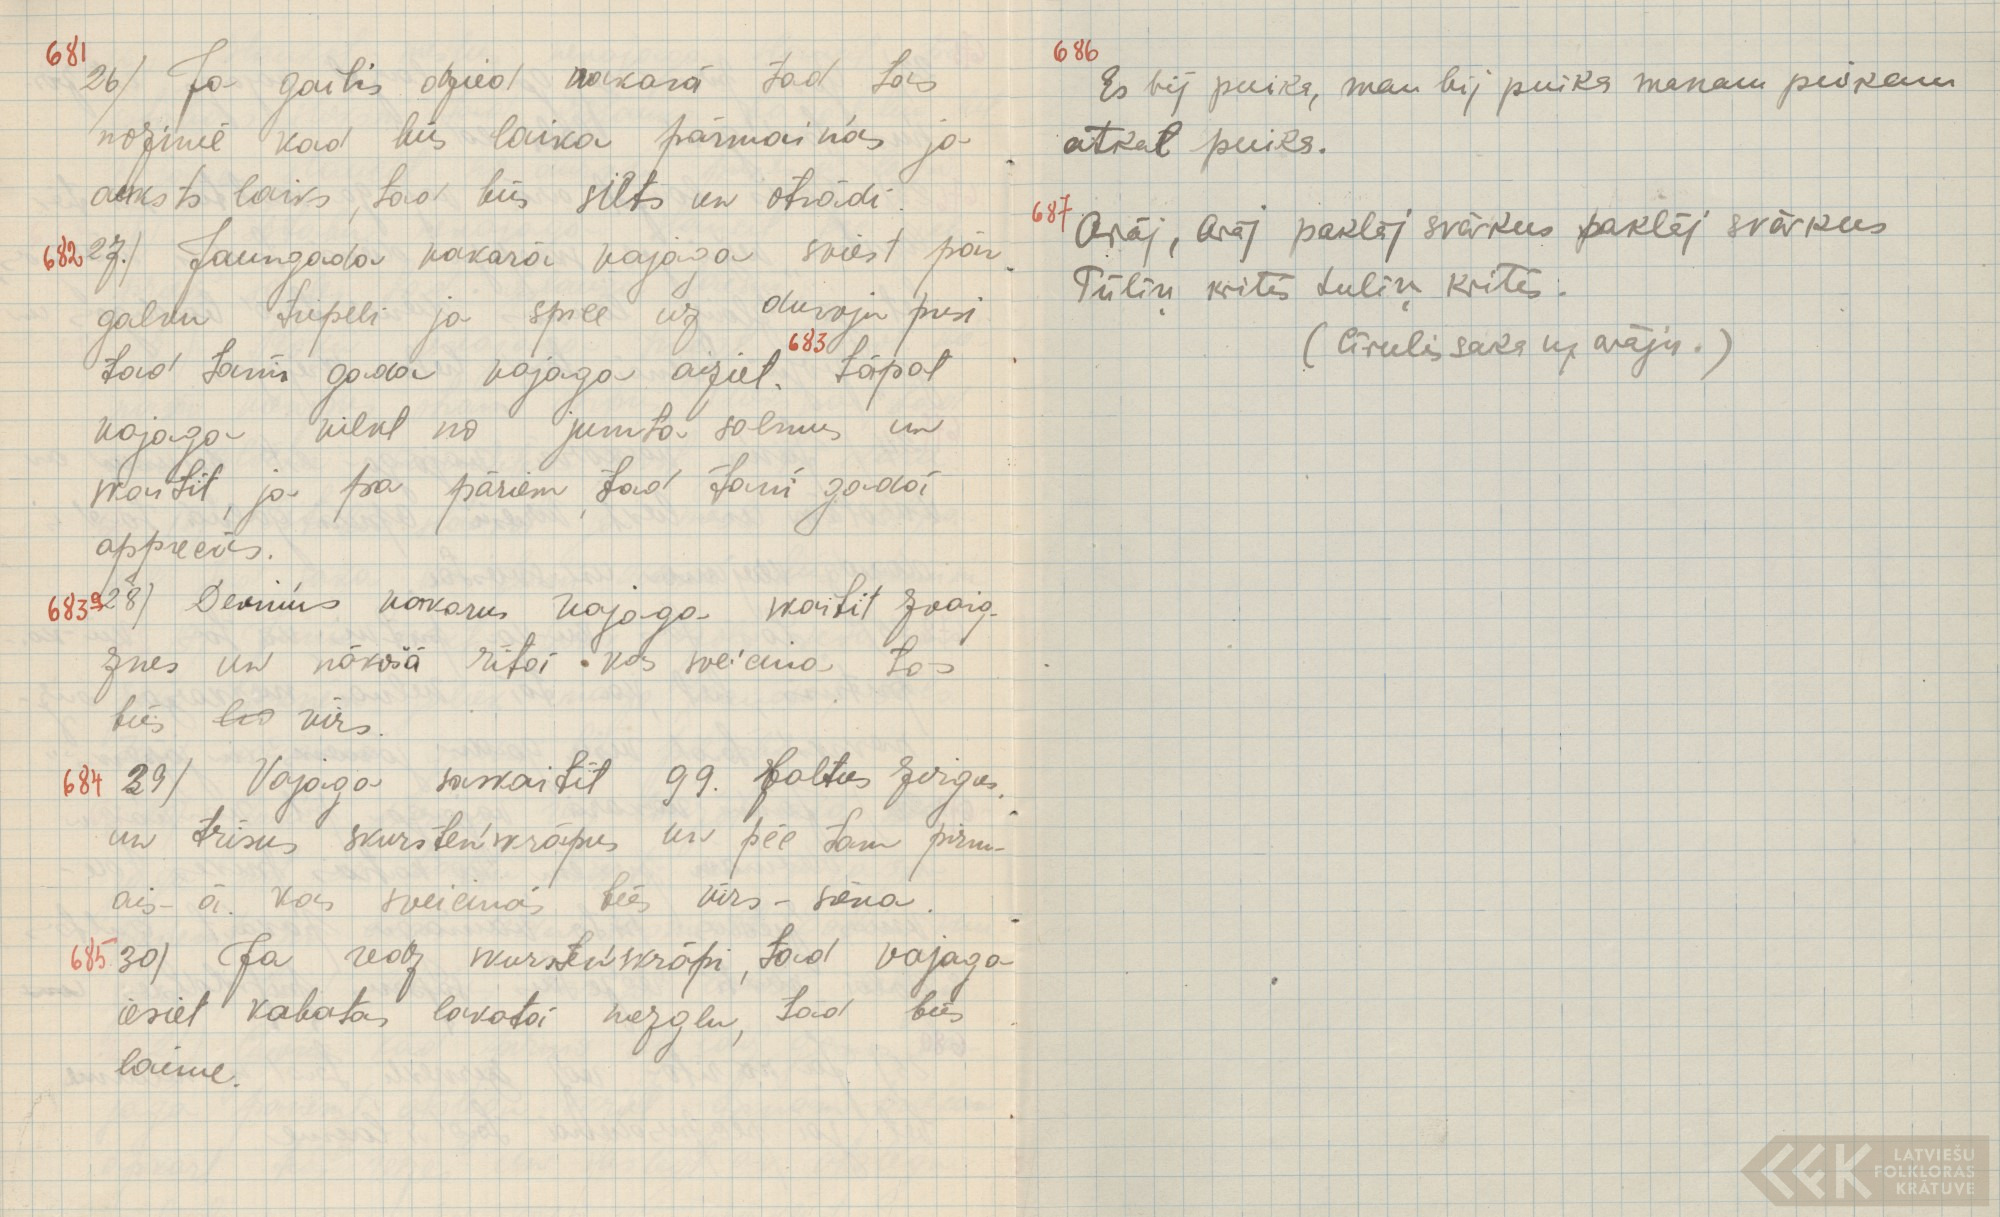 681
26) Ja gailis dzied vakarā tad tas
nozīmē kad būs laika pārmaiņas ja
auksts laiks, tad būs silts un otrādi.
682 27.) Jaungada vakarā vajaga sviest pār
galvu tupeli ja spice uz durvju pusi
tad tanīs gada vajaga aiziet. 683 Tāpat
vajaga vilkt no jumta salmus un
skaitīt, ja pa pāriem, tad tanī gadai
apprecēs.
683a 28) Deviņus vakarus vajaga skaitīt zvaig-
znes un nākošā rītai kas sveicina tas
būs vīrs.
684 29) Vajaga saskaitīt 99. baltus zirgus.
un trīsus skursteņskrāpus un pēc tam pirm-
ais-ā. kas sveicinās būs vīrs-sieva.
685 30) Ja redz skursteņskrāpi, tad vajaga
iesiet kabatas lakatai mezglu, tad būs
laime.
686
Es bij puika, man bij puika manam puikam
atkal puika.
687 Arāj, Arāj paklāj svārkus paklāj svārkus
Tūliņ kritīs tuliņ kritīs.
(Cīrulis saka uz arāju.)
LATVIEŠU
FOLKLORAS
KRĀTUVE